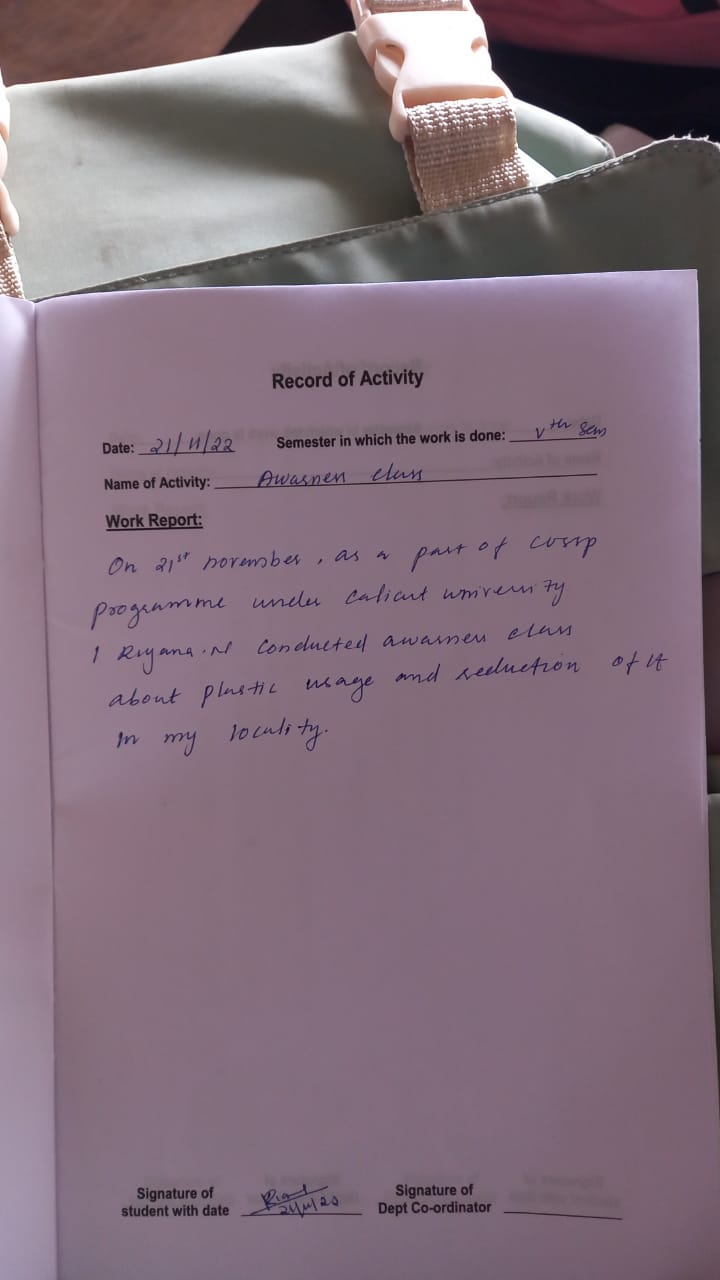 Record of Activity
Date: 21/11/22 Semester in which the work is done: Vth Sem
Name of Activity: Awarnen class
Work Report:
On 21st november, as a part of cussp
programme under calicut university
I Riyana.N conducted awarnen class
about plastic usage and reduction of it
in my locality.
Signature of
student with date 21/11/20
Signature of
Dept Co-ordinator